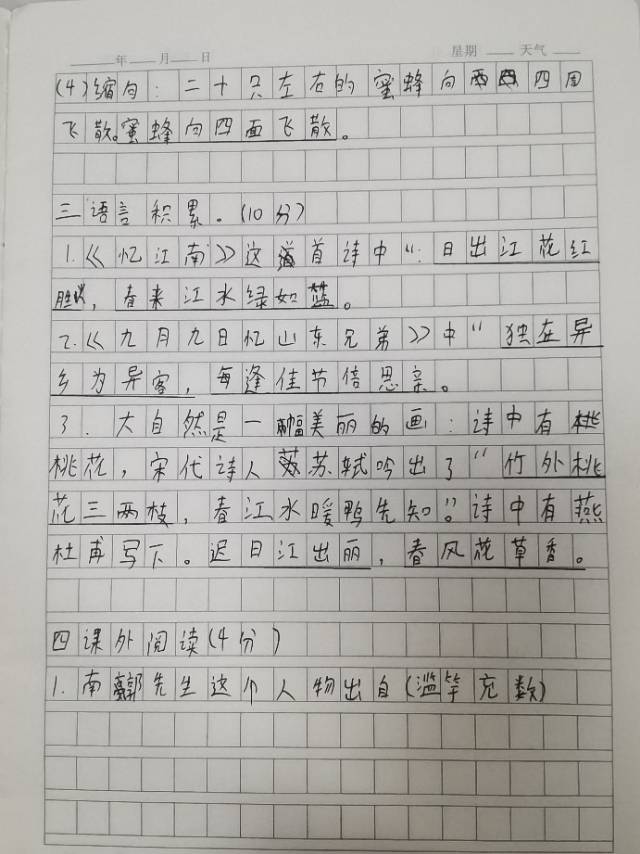 年 月 日 星期 天气
(4)缩句：二十只左右的蜜蜂向四周
飞散。蜜蜂向四面飞散。
三语言积累.(10分)
1.《忆江南》这首诗中“：日出江花红
胜火，春来江水绿如蓝。
2.《九月九日忆山东兄弟》中“独在异
乡为异客，每逢佳节倍思亲。
3.大自然是一幅美丽的画：诗中有桃
桃花，宋代诗人苏轼吟出了“竹外桃
花三两枝，春江水暖鸭先知”。诗中有燕
杜甫写下。迟日江出丽，春风花草香。
四课外阅读(4分)
1.南郭先生这个人物出自(滥竽充数)